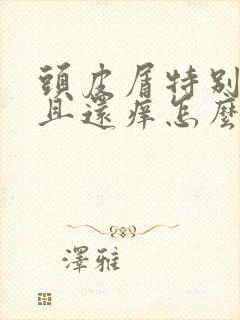 頭皮屑特別
且還痒怎麼
澤雅